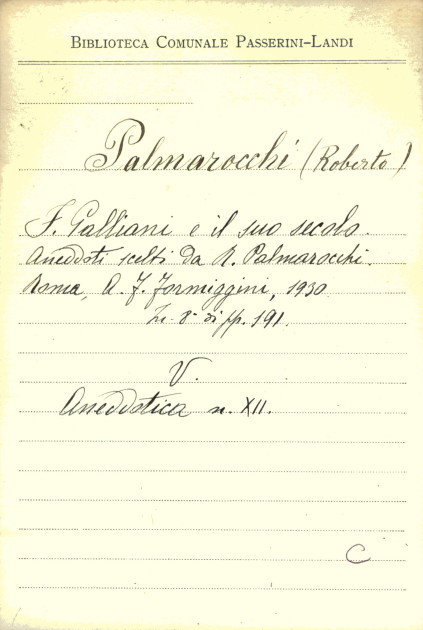 BIBLIOTECA COMUNALE PASSERINI-LANDI
Palmarocchi (Roberto)
F. Galliani e il suo secolo.
Aneddoti scelti da R. Palmarocchi.
Roma, A. F. Formiggini, 1930
In 8º di pp. 191.
V.
Aneddotica n. XII.
C